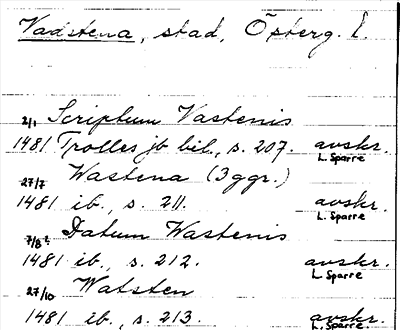 Vadstena, stad, Österg. l.
2/1 Scriptum Vastenis
1481 Trolles jb bil., s. 207. avskr.
L. Sparre
27/7 Wastena (3 ggr.)
1481 ib., s. 211. avskr.
L. Sparre
7/8 Datum Wastenis
1481 ib., s. 212. avskr.
L. Sparre
27/10 Watsten
1481 ib., s. 213. avskr.
L. Sparre